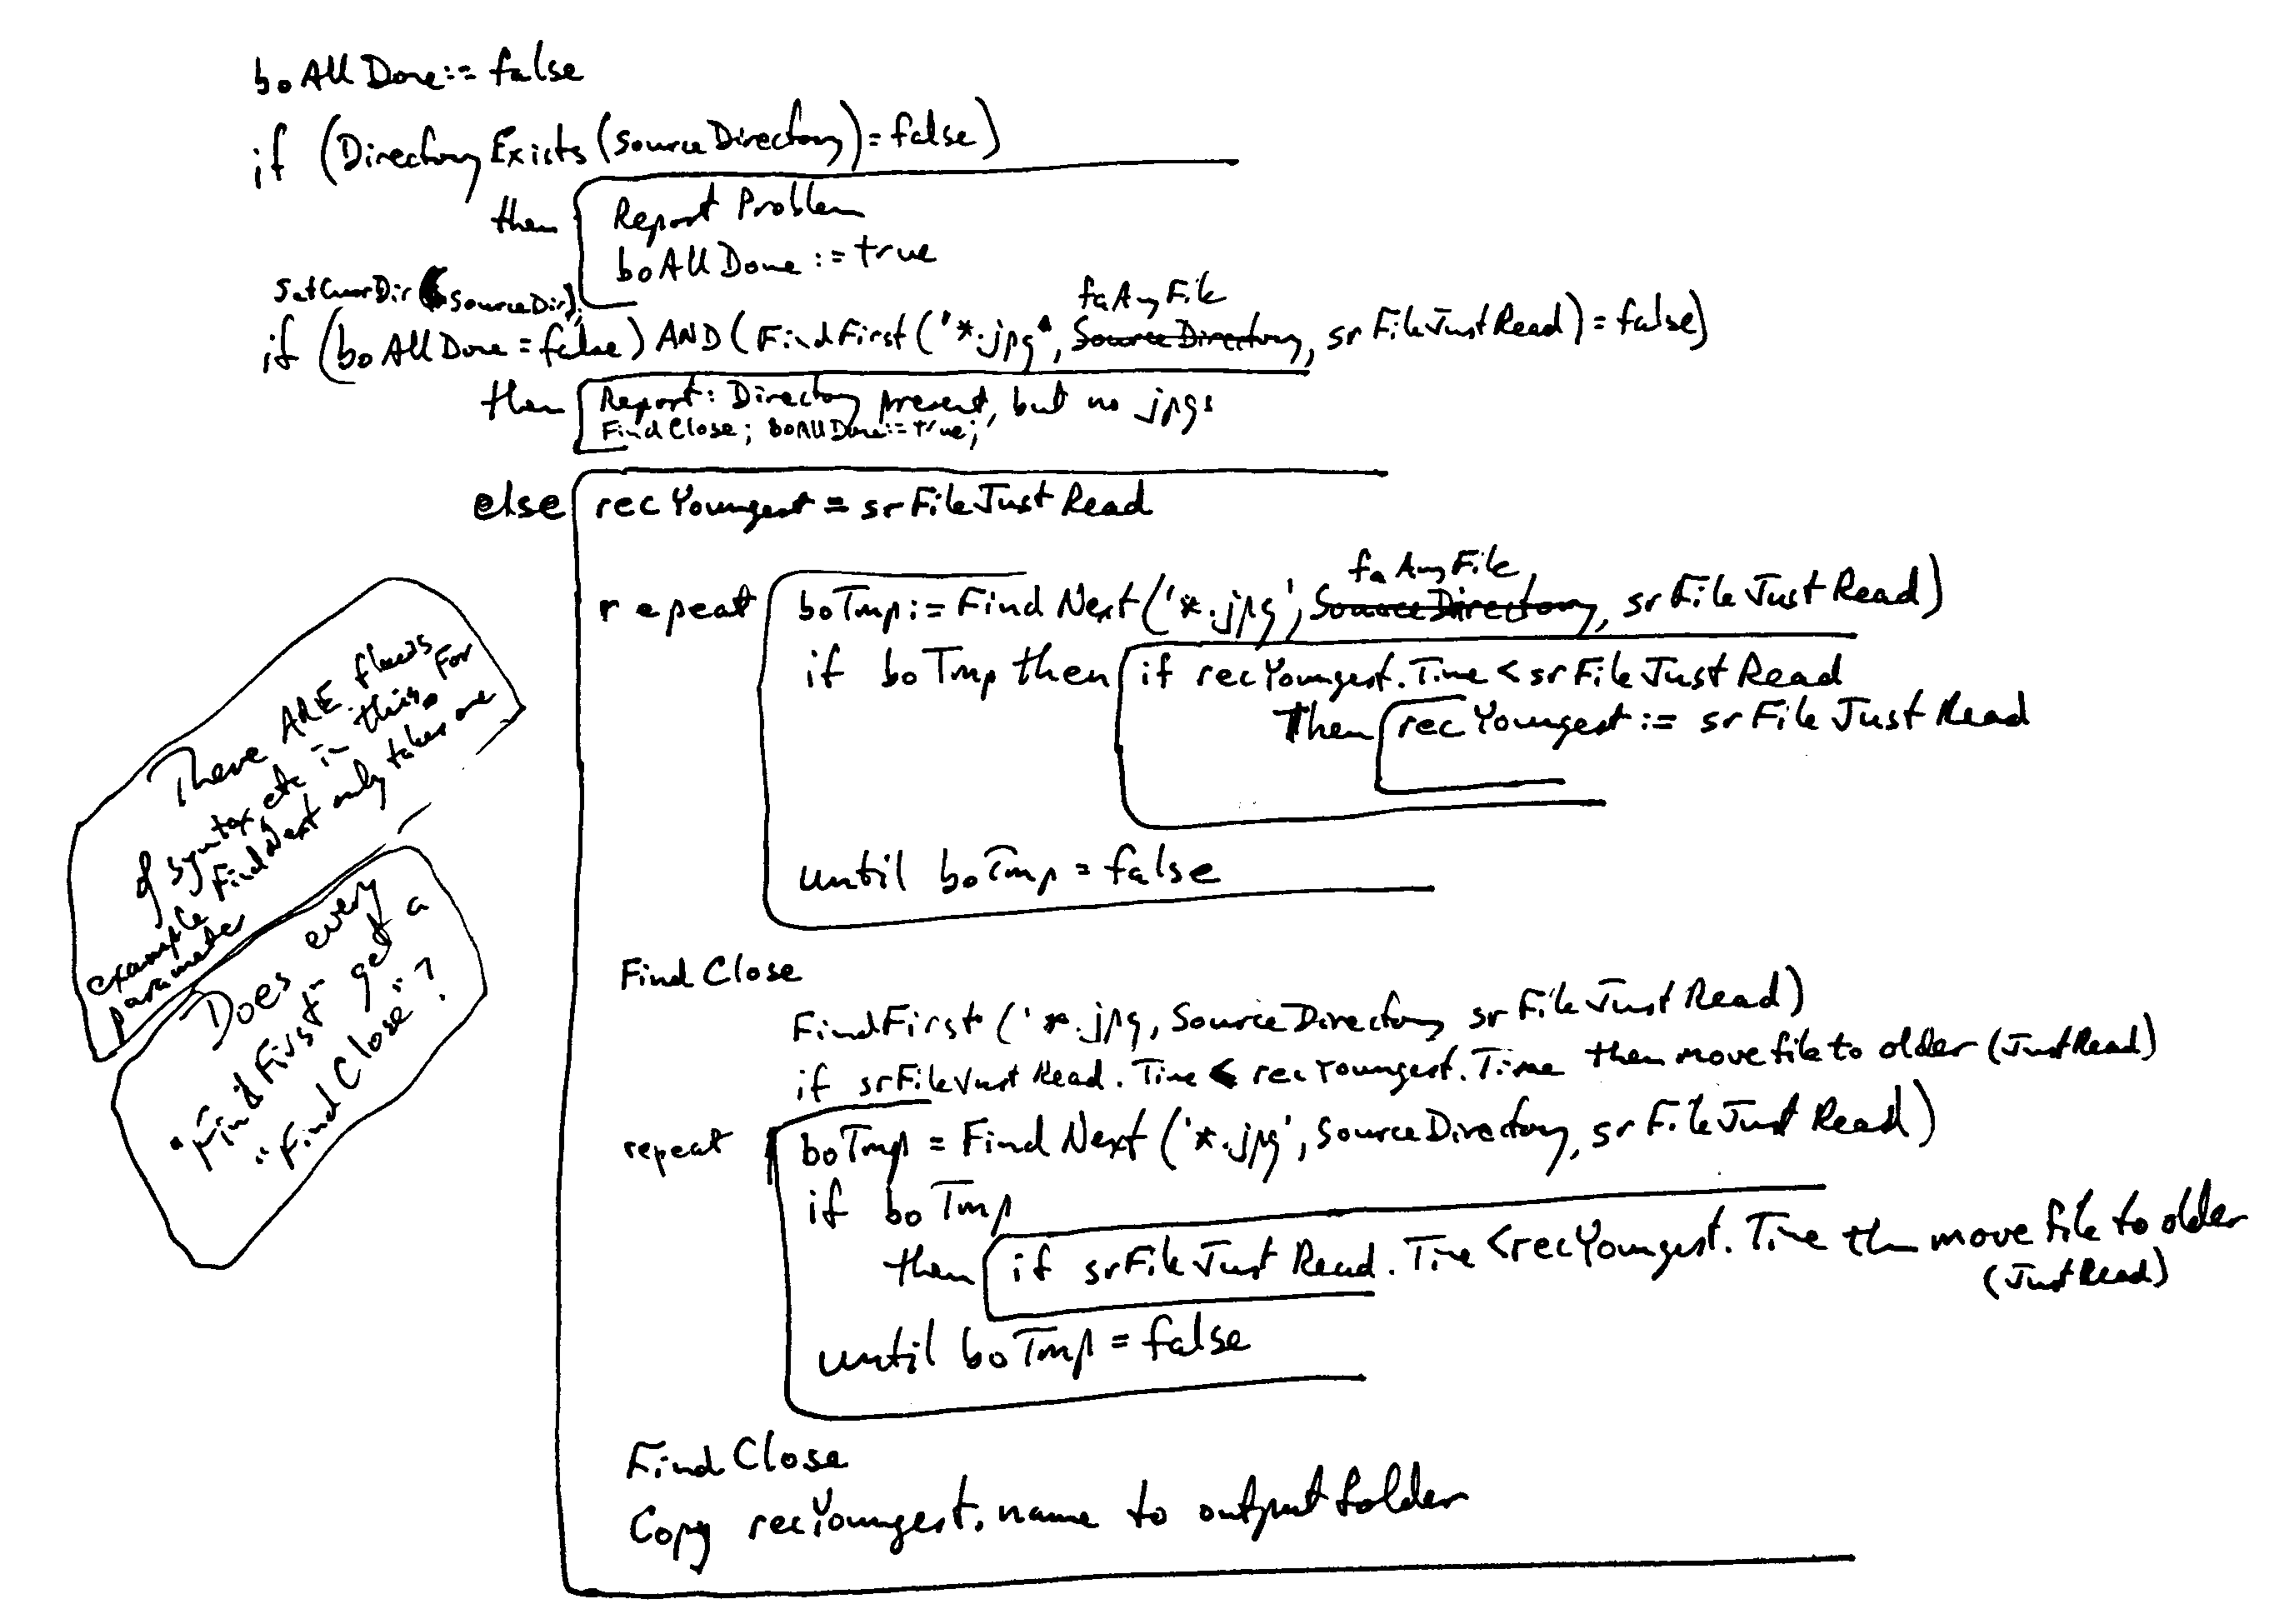 boAllDone:=false
if (DirectoryExists(sourceDirectory)=false)
then Report Problem
boAllDone:=true
SetCurrDir(SourceDir);
faAnyFile
if (boAllDone=false) AND (FindFirst('*.jpg', SourceDirectory, srFileJustRead)=false)
then Report: Directory present, but no jpgs
FindClose; boAllDone:=true;
else recYoungest = srFileJustRead
faAnyFile
repeat boTmp:=FindNext('*.jpg', SourceDirectory, srFileJustRead)
if boTmp then if recYoungest.Time < srFileJustRead
then recYoungest := srFileJustRead
until boTmp = false
There ARE flaws
of syntax, etc in this. For
example FindNext only takes one
parameter
Does every
"FindFirst" get a
"FindClose"?
FindClose
FindFirst('*.jpg, SourceDirectory srFileJustRead)
if srFileJustRead.Time < recYoungest.Time then move file to older (JustRead)
repeat boTmp = FindNext('*.jpg', SourceDirectory, srFileJustRead)
if boTmp
then if srFileJustRead.Time <recYoungest.Time then move file to older
(JustRead)
until boTmp = false
FindClose
Copy recYoungest.name to output folder